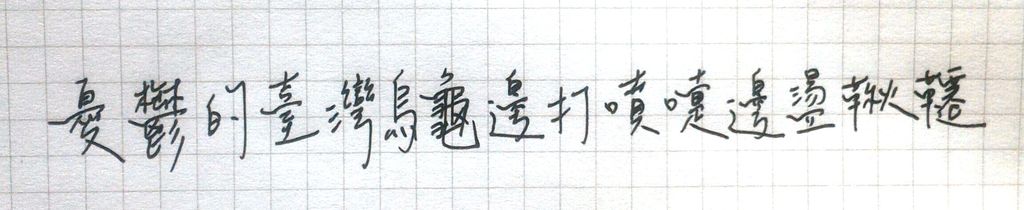 憂鬱的臺灣烏龜邊打噴嚏邊盪鞦韆